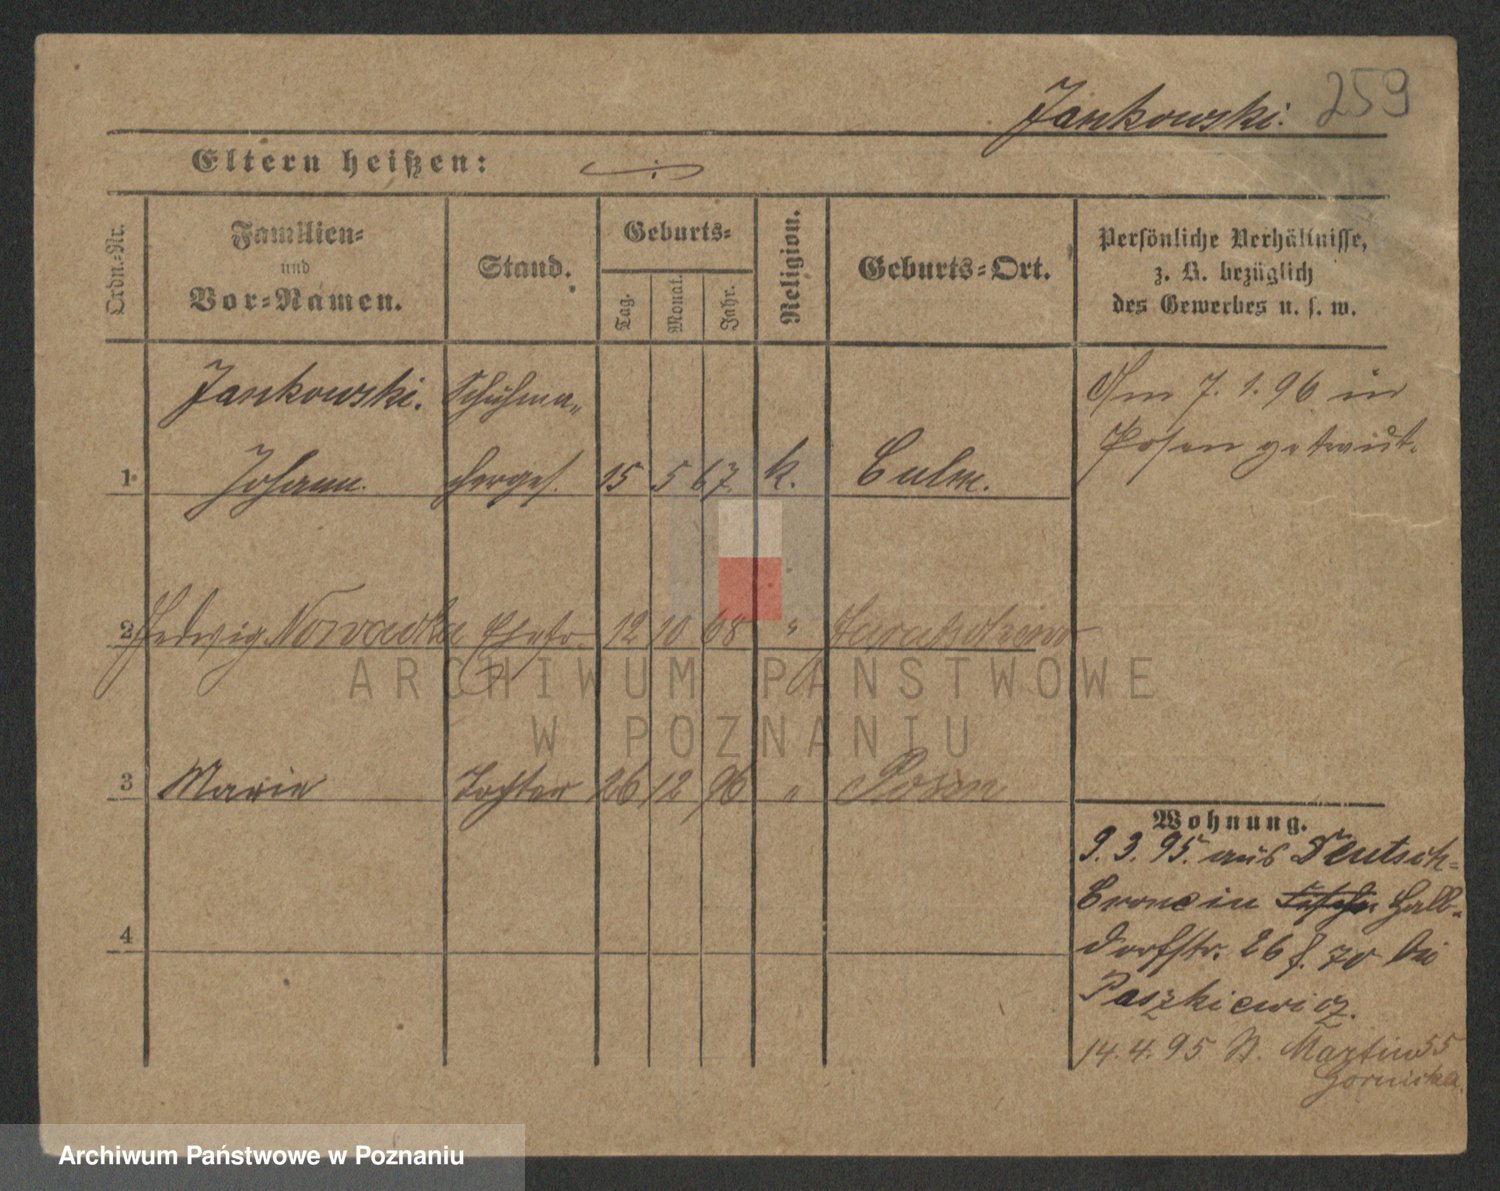 259
Jankowski.
Eltern heißen:
Ordn.-Nr.
Familien-
und
Vor-Namen.
Stand.
Geburts-
Tag.
Monat.
Jahr.
Religion.
Geburts-Ort.
Persönliche Verhältnisse,
z. B. bezüglich
des Gewerbes u. s. w.
Jankowski. Schuhma-
1 Johann. cherges. 15 5 67. k. Culm.
Am 7. 1. 96 in
Posen getraut.
2 Hedwig Nowacka Ehefr. 12 10 68 "
3 Marie Tochter 26 12 96 " Posen
4
Wohnung.
9. 3. 95. aus Deutsch-
Crone in Halb-
dorfstr. 26 f. 70 bei
Paszkiewicz.
14. 4. 95 St. Martin 55
Gornicka.
ARCHIWUM PAŃSTWOWE
W POZNANIU
Archiwum Państwowe w Poznaniu